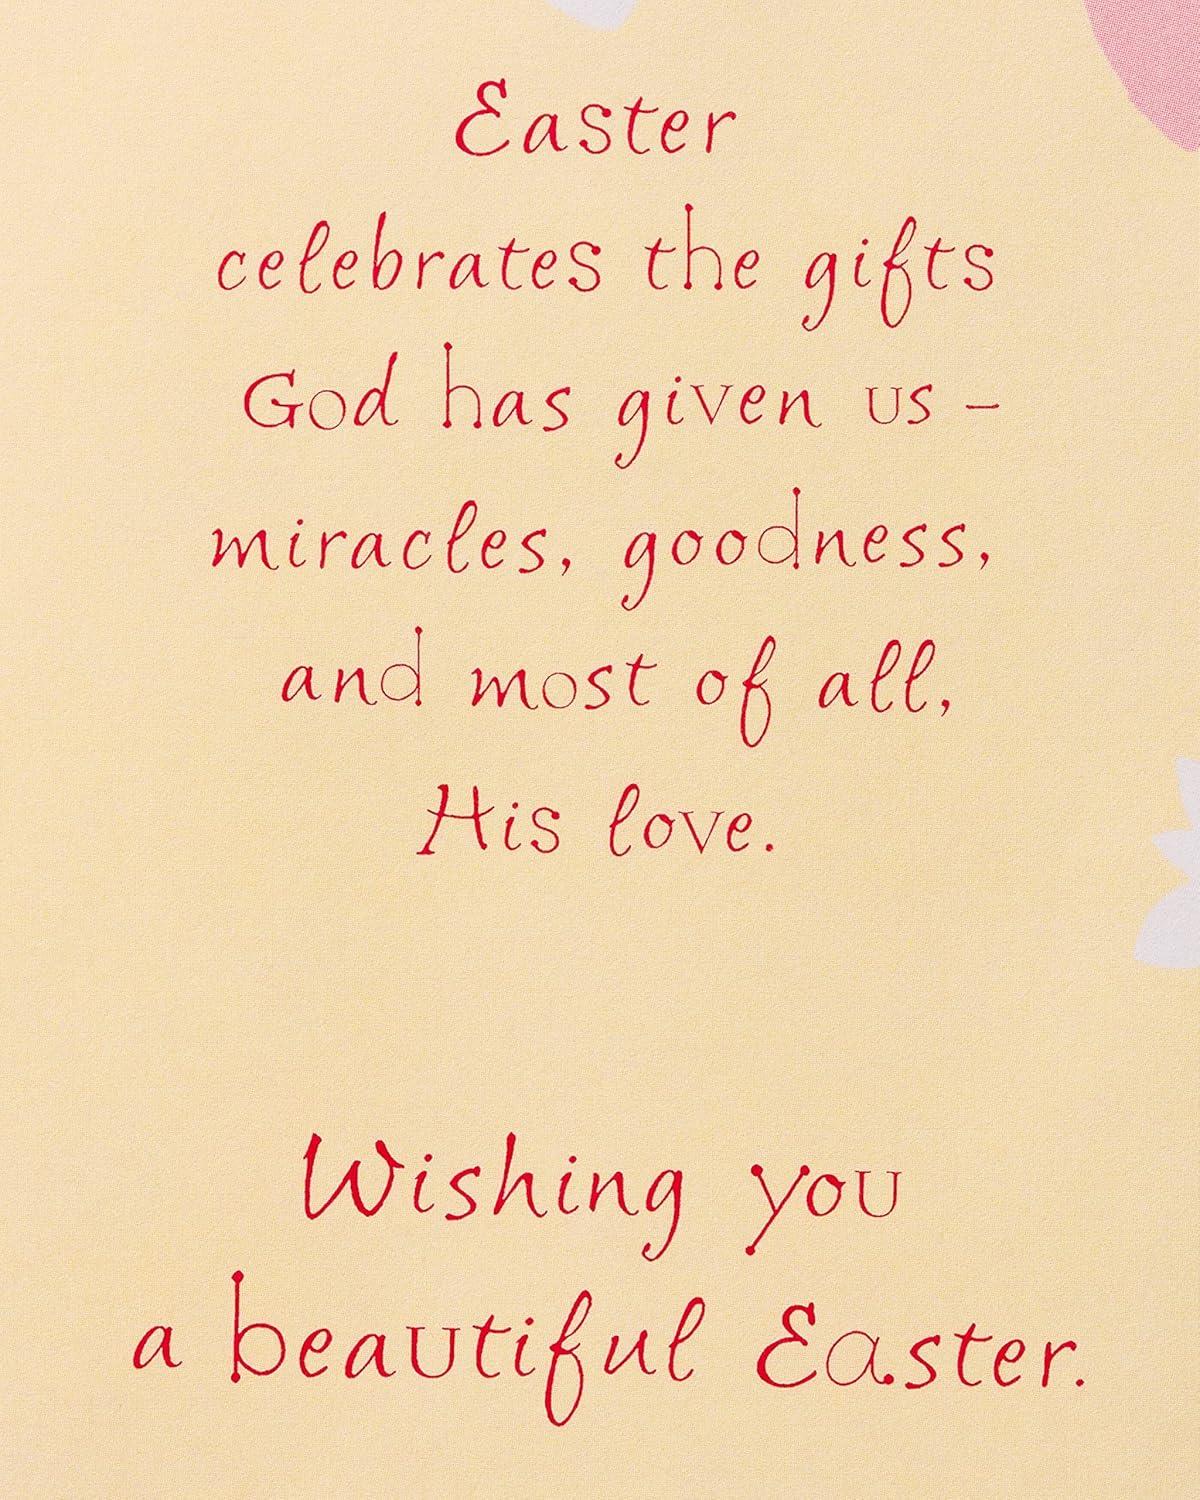 Easter
celebrates the gifts
God has given us –
miracles, goodness,
and most of all,
His love.
Wishing you
a beautiful Easter.